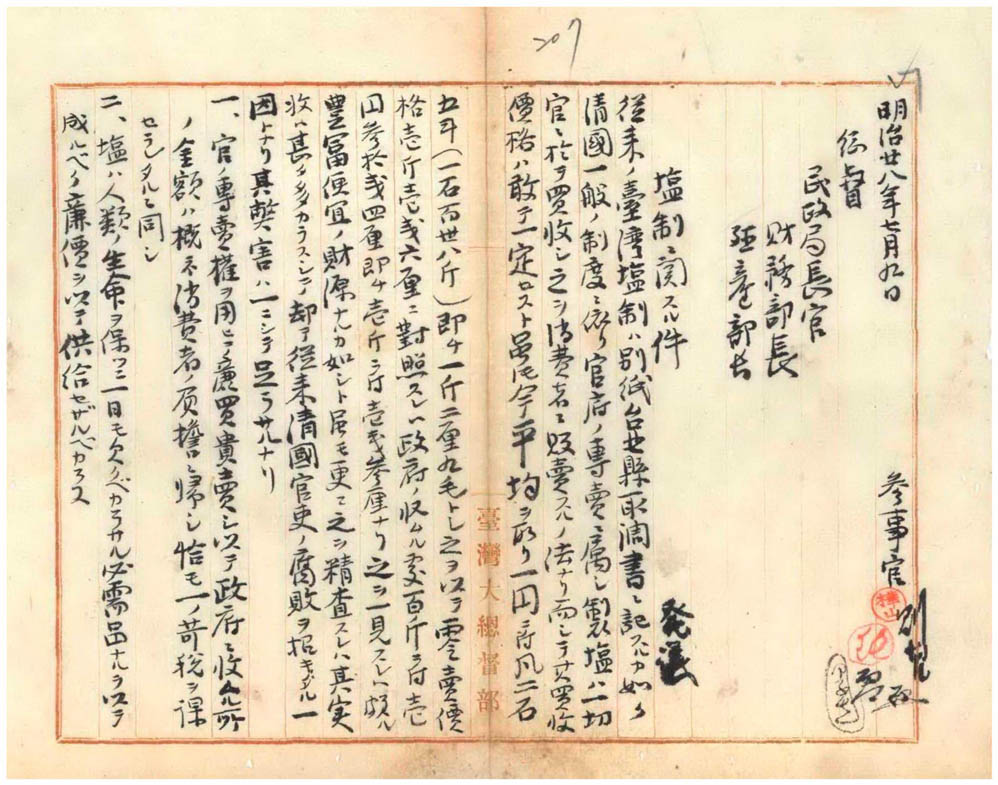 207
明治廿八年七月九日
参事官
総督
民政局長官
財務部長
発議
塩制ニ関スル件
従来ノ臺湾塩制ハ別紙台北縣取調書ニ記スルカ如ク
清國一般ノ制度ニ依リ官府ノ専賣ニ属シ製塩ハ一切
官ニ於テ買收シ之ヲ消費者ニ販賣スルノ法ナリ而シテ其買收
價格ハ敢テ一定セスト虽モ今平均ヲ取リ一円ニ付凡二石
五斗(一石百卅八斤)即チ一斤二厘九毛トシ之ヲ以テ零賣價
格壱斤壱戔六厘ニ對照スレハ政府ノ収ムル処百斤ニ付壱
円参拾戔四厘即チ壱斤ニ付壱戔参厘ナリ之ヲ一見スレハ頗ル
豊冨便宜ノ財源ナルカ如シト虽モ更ニ之ヲ精査スレハ其実
收ハ甚タ多カラスシテ却テ従来清國官吏ノ腐敗ヲ招キタル一
因トナリ其弊害ハ一ニシテ足ラサルナリ
一、官ノ専賣権ヲ用ヒテ廉買貴賣シ以テ政府ニ收ムル所
ノ金額ハ概ネ消費者ノ負擔ニ帰シ恰モ一ノ苛税ヲ課
セラレタルト同シ
二、塩ハ人類ノ生命ヲ保ツニ一日モ欠クベカラサル必需品ナルヲ以テ
成ルベク廉價ヲ以テ供給セザルベカラス
臺灣大總督部